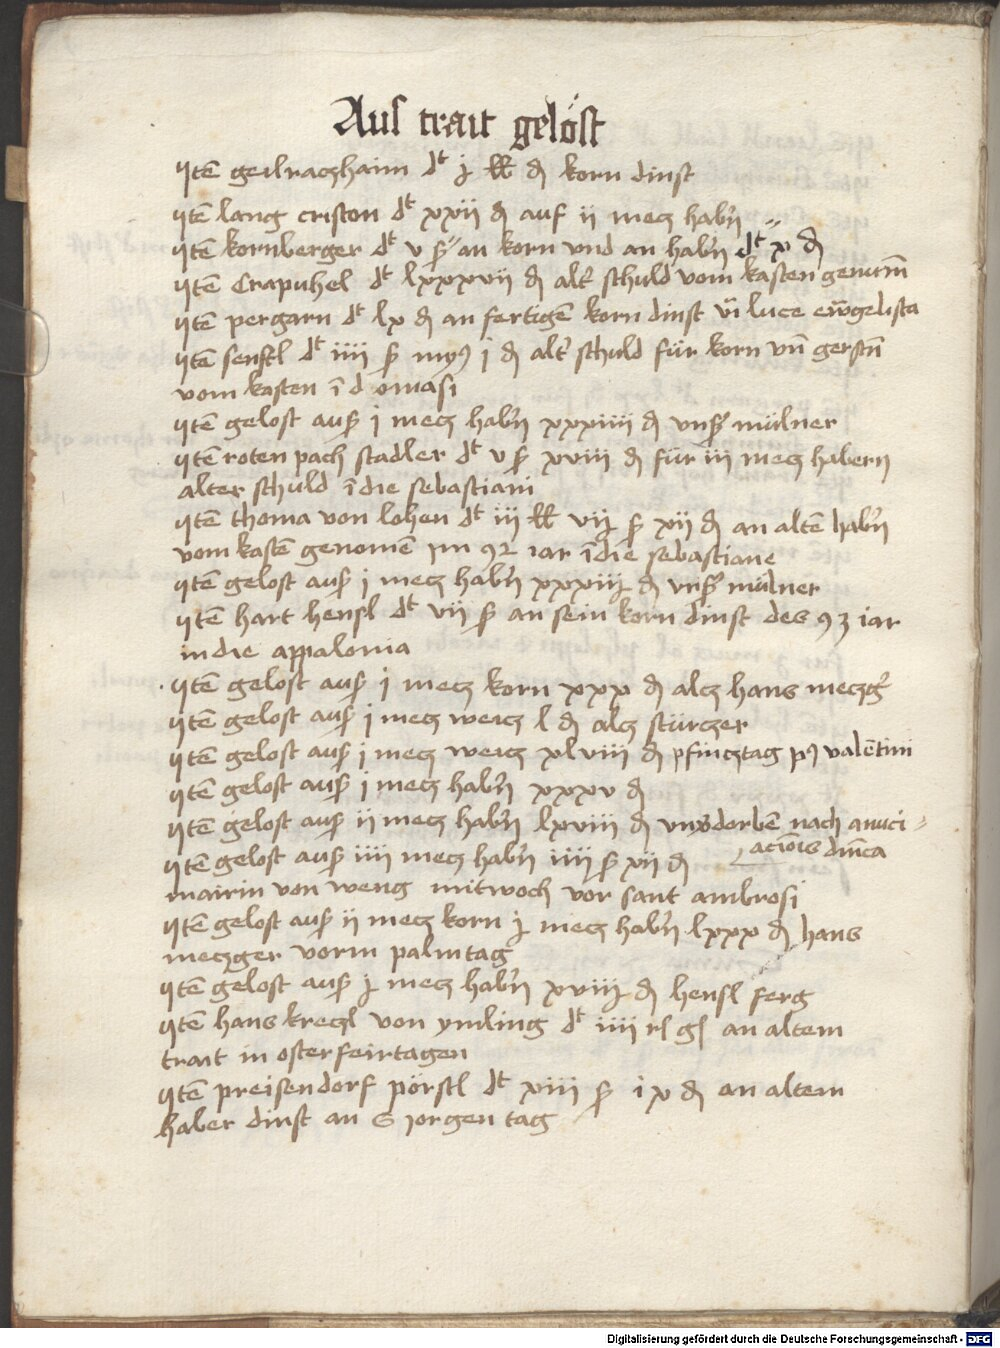 Aus trait gelöst
Itē geilraczhaim dt j lb d korn dinst
Itē lang criston dt xxii d auf ii mecz habn̄
Itē kornberger dt v ß an korn vnd an habn̄ dt x d
Itē Crapuhel dt lxxxvii d alt schuld vom kasten genum̄
Itē pergarn dt lx d an fertigē korn dinst vī luce ew̄gelista
Itē senftl dt iiii ß i d alt schuld für korn vn̄ gerstn̄
vom kasten ī d omasi
Itē gelost auß i mecz habn̄ xxxiiii d vnß mülner
Itē roten pach stadler dt v ß xviii d für iii mecz habern
alter schuld ī die sebastiani
Itē thoma von lohen dt iij lb vij ß xii d an altē habn̄
vom kastē genomē im 92 iar ī die sebastiane
Itē gelost auß i mecz habn̄ xxxiij d vnß mülner
Itē hart hensl dt vii ß an sein korn dinst des 93 iar
in die appalonia
Itē gelost auß i mecz korn xxx d alcz hans meczg
Itē gelost auß i mecz weicz l d alcz stürczer
Itē gelost auß i mecz weicz xlviii d pfincztag valētini
Itē gelost auß i mecz habn̄ xxxv d
Itē gelost auß ii mecz habn̄ lxviii d nach anūci
aciōis dn̄ica
Itē gelost auß iiii mecz habn̄ iiii ß xii d
mairin von weng mitwoch vor sant ambrosi
Itē gelost auß ii mecz korn j mecz habn̄ lxxx d hans
meczger vorm palmtag
Itē gelost auß j mecz habn̄ xviij d hensl ferg
Itē hans kreczl von ymling dt iiii an altem
trait in osterfeirtagen
Itē preisendorf pörstl dt xiii ß ix d an altem
haber dinst an S jorgen tag
Digitalisierung gefördert durch die Deutsche Forschungsgemeinschaft - DFG